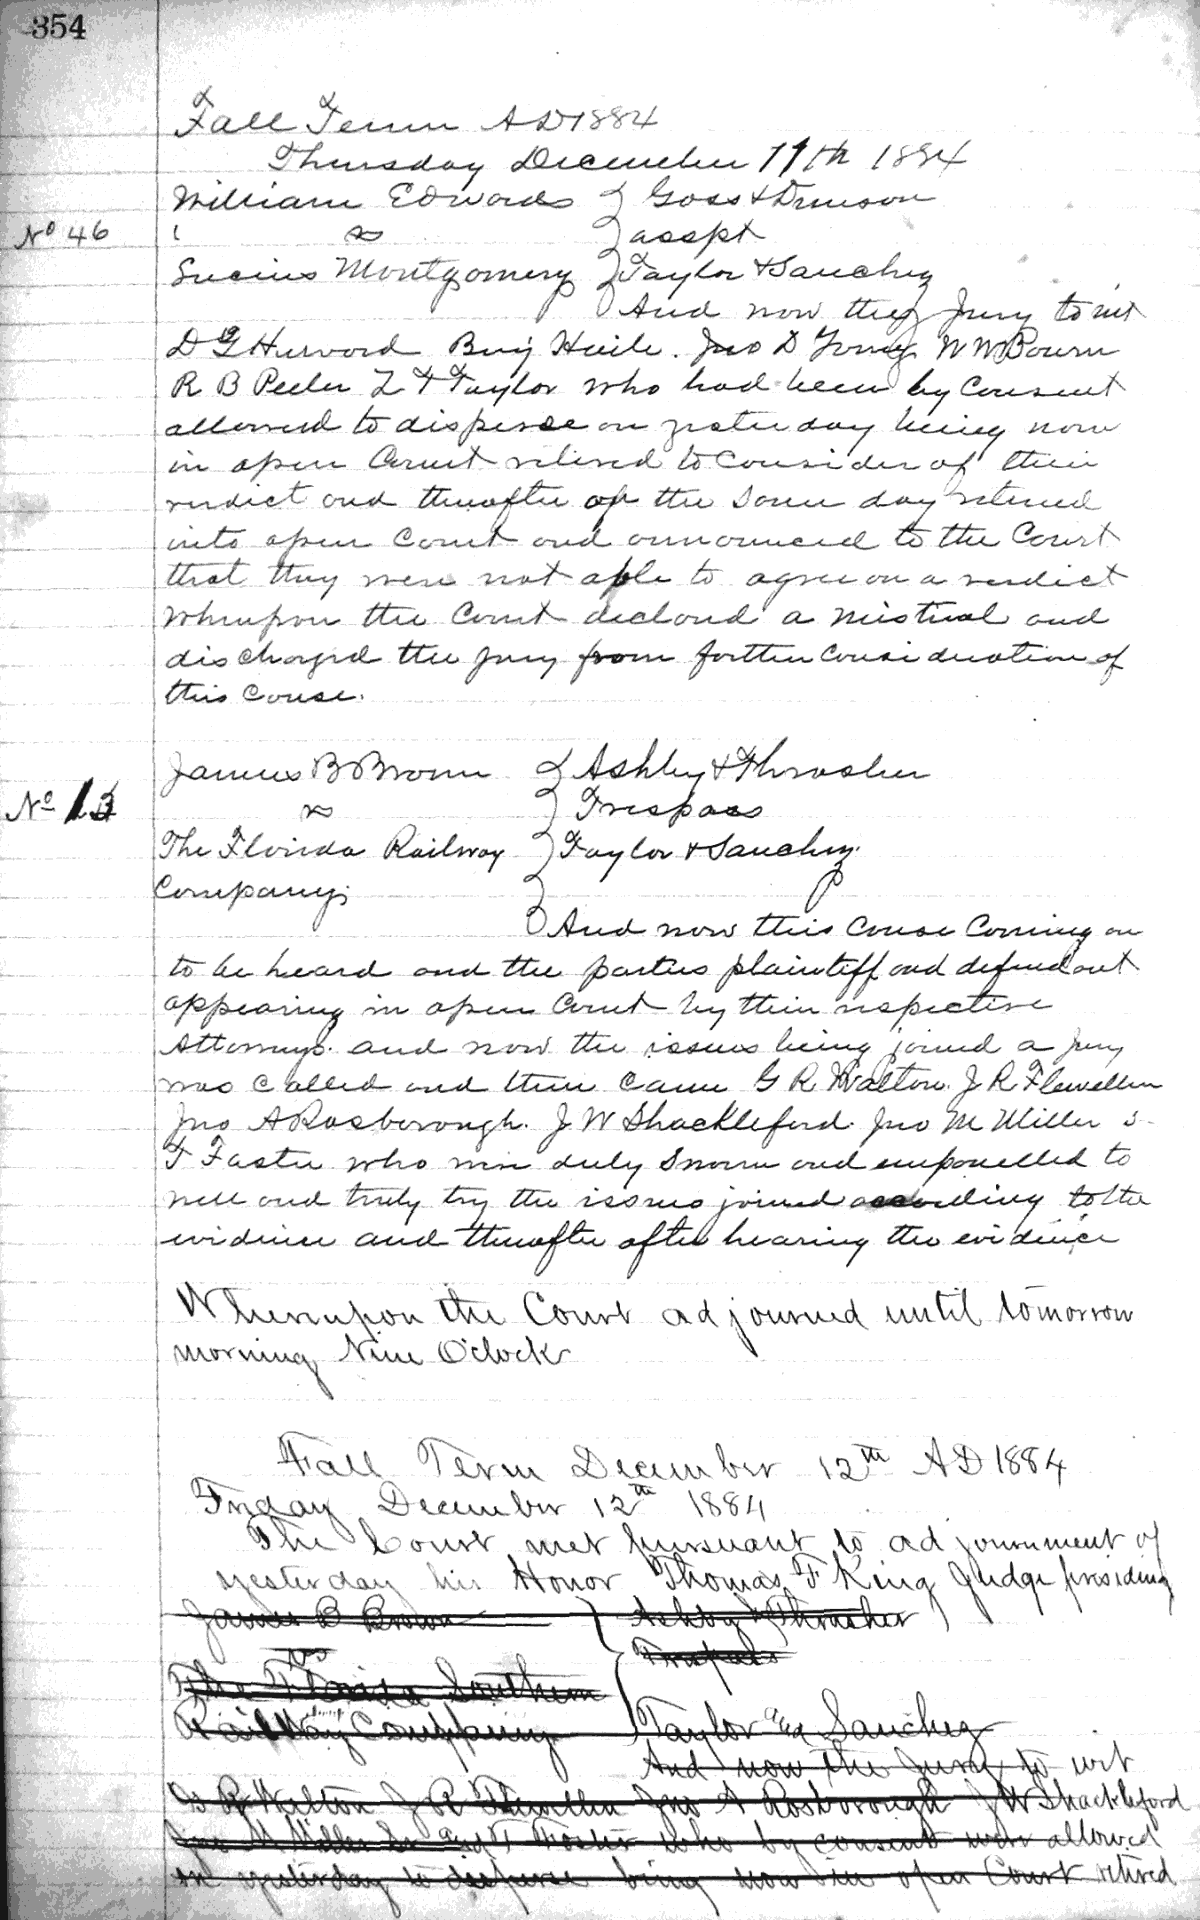 354
Fall Term AD 1884
Thursday December 11th 1884
William Edwards } Goss &
No 46 vs } asspt
Lucius Montgomery } Taylor & Sanchez
And now they Jury to wit
D G Benj Jno D Young W W Bourn
R B Peeler L F Taylor who had been by Consent
allowed to disperse on yesterday being now
in open Court retired to Consider of their
verdict and thereafter of the same day retured
into open Court and announced to the Court
that they were not able to agree on a verdict
Whereupon the Court declared a mistrial and
discharged the jury from further Consideration of
this Cause.
James B Brown } Ashby & Thrasher
No 13 vs } Trespass
The Florida Railway } Taylor & Sanchez
Company }
And now this Cause Coming on
to be heard and the parties plaintiff and defendant
appearing in open Court by their respective
Attorneys and now the issues being joined a jury
was called and their came G R Walton. J R Flewellen
Jno A Rosborough. J W Shackleford. Jno M Miller S
T Foster who were duly sworn and empanelled to
well and truly try the issues joined according to the
evidence and thereafter after hearing the evidence
Whereupon the Court adjourned until tomorrow
morning Nine O'clock
Fall Term December 12th AD 1884
Friday December 12th 1884
The Court met pursuant to adjournment of
yesterday his Honor Thomas F King Judge presiding
James B Brown } Ashby & Thrasher
vs } Trespass
The Florida Southern
Railway Company } Taylor and Sanchez
And now the Jury to wit
G R Walton J R Flewellen Jno A Rosborough J W Shackleford
Jno M Miller Sr and T Foster who by consent were allowed
on yesterday to disperse being now in open Court retired